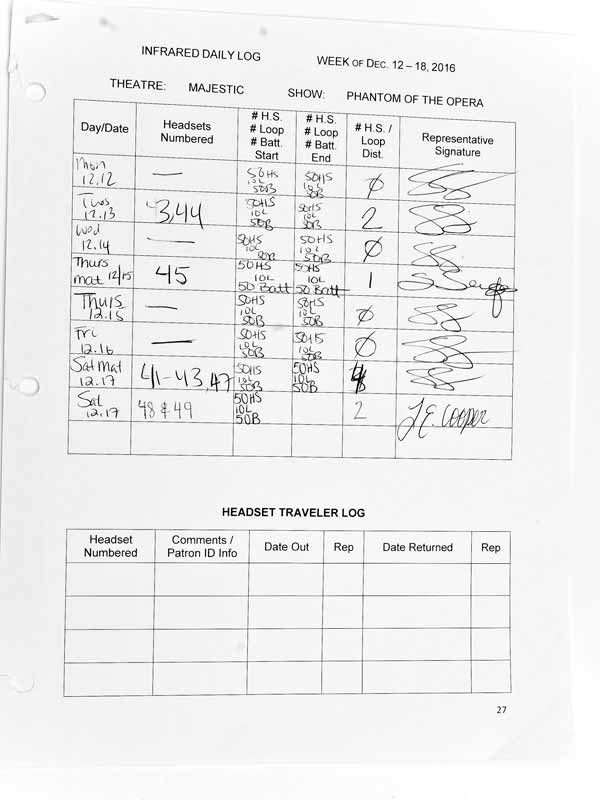 INFRARED DAILY LOG WEEK OF DEC. 12 – 18, 2016
THEATRE: MAJESTIC SHOW: PHANTOM OF THE OPERA
Day/Date Headsets Numbered # H.S. # Loop # Batt. Start # H.S. # Loop # Batt. End # H.S. / Loop Dist. Representative Signature
Mon 12.12 — 50HS 10L 50B 50HS 10L 50B 0
Tues 12.13 3,44 50HS 10L 50B 50HS 10L 50B 2
Wed 12.14 — 50HS 10L 50B 50HS 10L 50B 0
Thurs mat 12/15 45 50HS 10L 50 Batt 50HS 10L 50 Batt 1
Thurs 12.15 — 50HS 10L 50B 50HS 10L 50B 0
Fri 12.16 — 50HS 10L 50B 50HS 10L 50B 0
Sat Mat 12.17 41-43,47 50HS 10L 50B 50HS 10L 50B 4
Sat 12.17 48 & 49 50HS 10L 50B 2 J.E. Cooper
HEADSET TRAVELER LOG
Headset Numbered Comments / Patron ID Info Date Out Rep Date Returned Rep
27